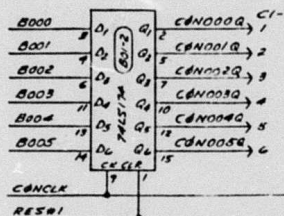 C1-
B000 3 D1 Q1 2 CON000Q 1
B001 4 D2 Q2 5 CON001Q 2
B002 6 D3 Q3 7 CON002Q 3
B003 11 D4 Q4 10 CON003Q 4
B004 13 D5 Q5 12 CON004Q 5
B005 14 D6 Q6 15 CON005Q 6
B4-2
74LS174
CK CLR
9 1
CONCLK
RES#1